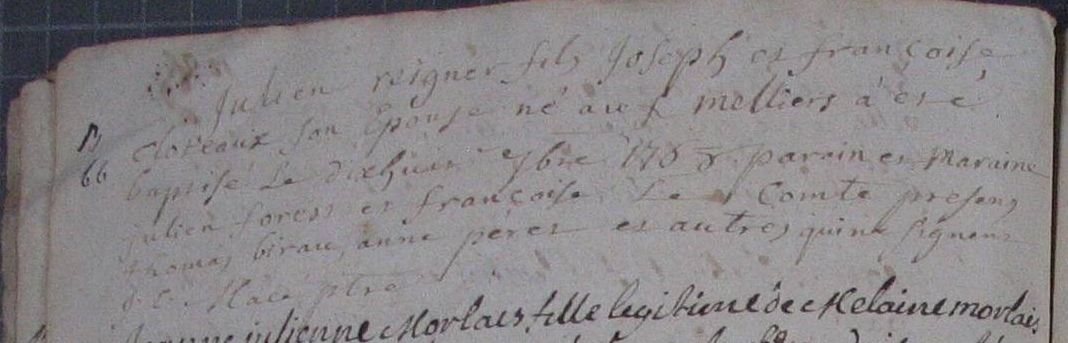 Julien reigner fils Joseph et françoise
B cloteaux son Epouse né au melliers à eté
66 baptisé Le dixhuit 7bre 1768 parain et Maraine
julien forest et françoise Le Comte presens
thomas birau, anne perer et autres qui ne signent
Macé ptre
julienne Morlais fille legitime de Melaine morlais